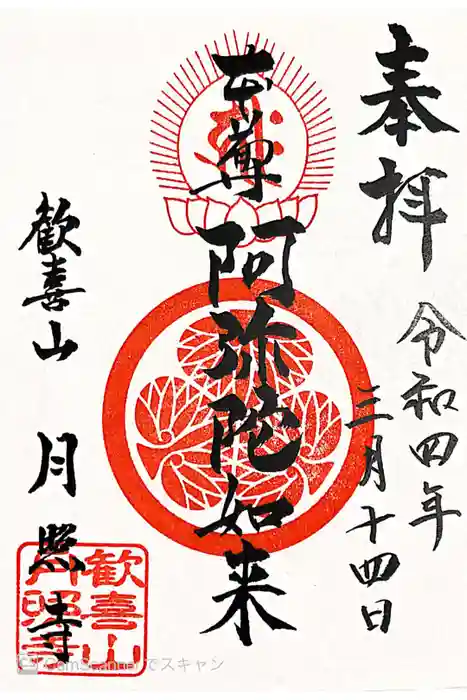 奉拝
令和四年
三月十四日
本尊
阿弥陀如来
歓喜山 月照寺
歓喜山
月照寺
CamScannerでスキャン